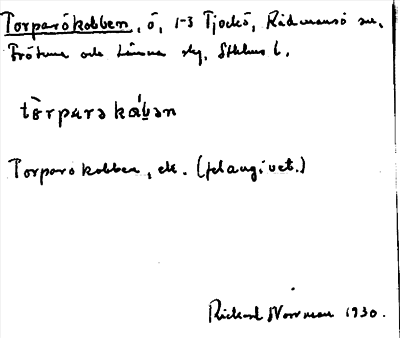 Torparökobben, ö, 1-3 Tjockö, Rådmansö sn,
Frötuna och Länna skg, Sthlms l.
tòrparəkábən
Torparökobben, ek. (fel angivet.)
Rickard Norrman 1930.